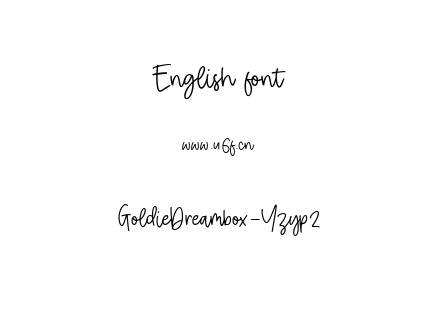 English font
www.u6f.cn
GoldieDreambox-Yzyp2